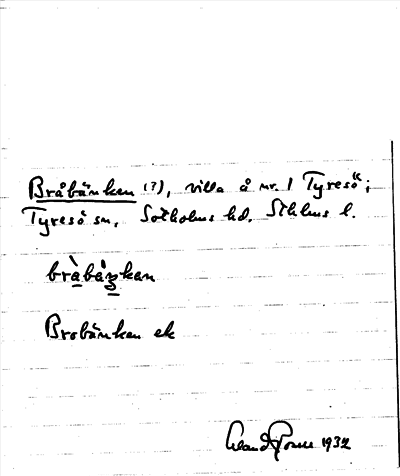 Bråbänken (?), villa å nr. 1 Tyresö;
Tyresö sn, Sotholms hd. Sthlms l.
Brobänken ek
1932